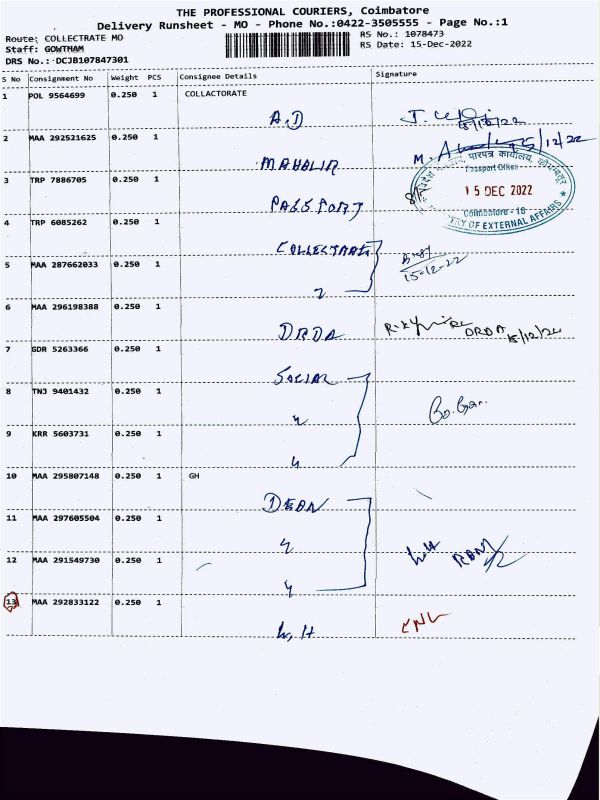 THE PROFESSIONAL COURIERS, Coimbatore
Delivery Runsheet - MO - Phone No.:0422-3505555 - Page No.:1
Route: COLLECTRATE MO
RS No.: 1078473
Staff: GOWTHAM
RS Date: 15-Dec-2022
DRS No.: DCJB107847301
S No Consignment No Weight PCS Consignee Details Signature
1 POL 9564699 0.250 1 COLLACTORATE
A.D
15/12/22
2 MAA 292521625 0.250 1
MAHALIR
M. 15/12/22
3 TRP 7886705 0.250 1
पारपत्र कार्यालय,
Passport Office
15 DEC 2022
Coimbatore - 18
OF EXTERNAL AFFAIRS
PASSPORT
4 TRP 6085262 0.250 1
COLLECTRATE
5 MAA 287662033 0.250 1
15-12-22
6 MAA 296198388 0.250 1
DRDA
DRDA 15/12/22
7 GDR 5263366 0.250 1
SOCIAL
8 TNJ 9401432 0.250 1
9 KRR 5603731 0.250 1
10 MAA 295807148 0.250 1 GH
DEAN
11 MAA 297605504 0.250 1
12 MAA 291549730 0.250 1
13 MAA 292833122 0.250 1